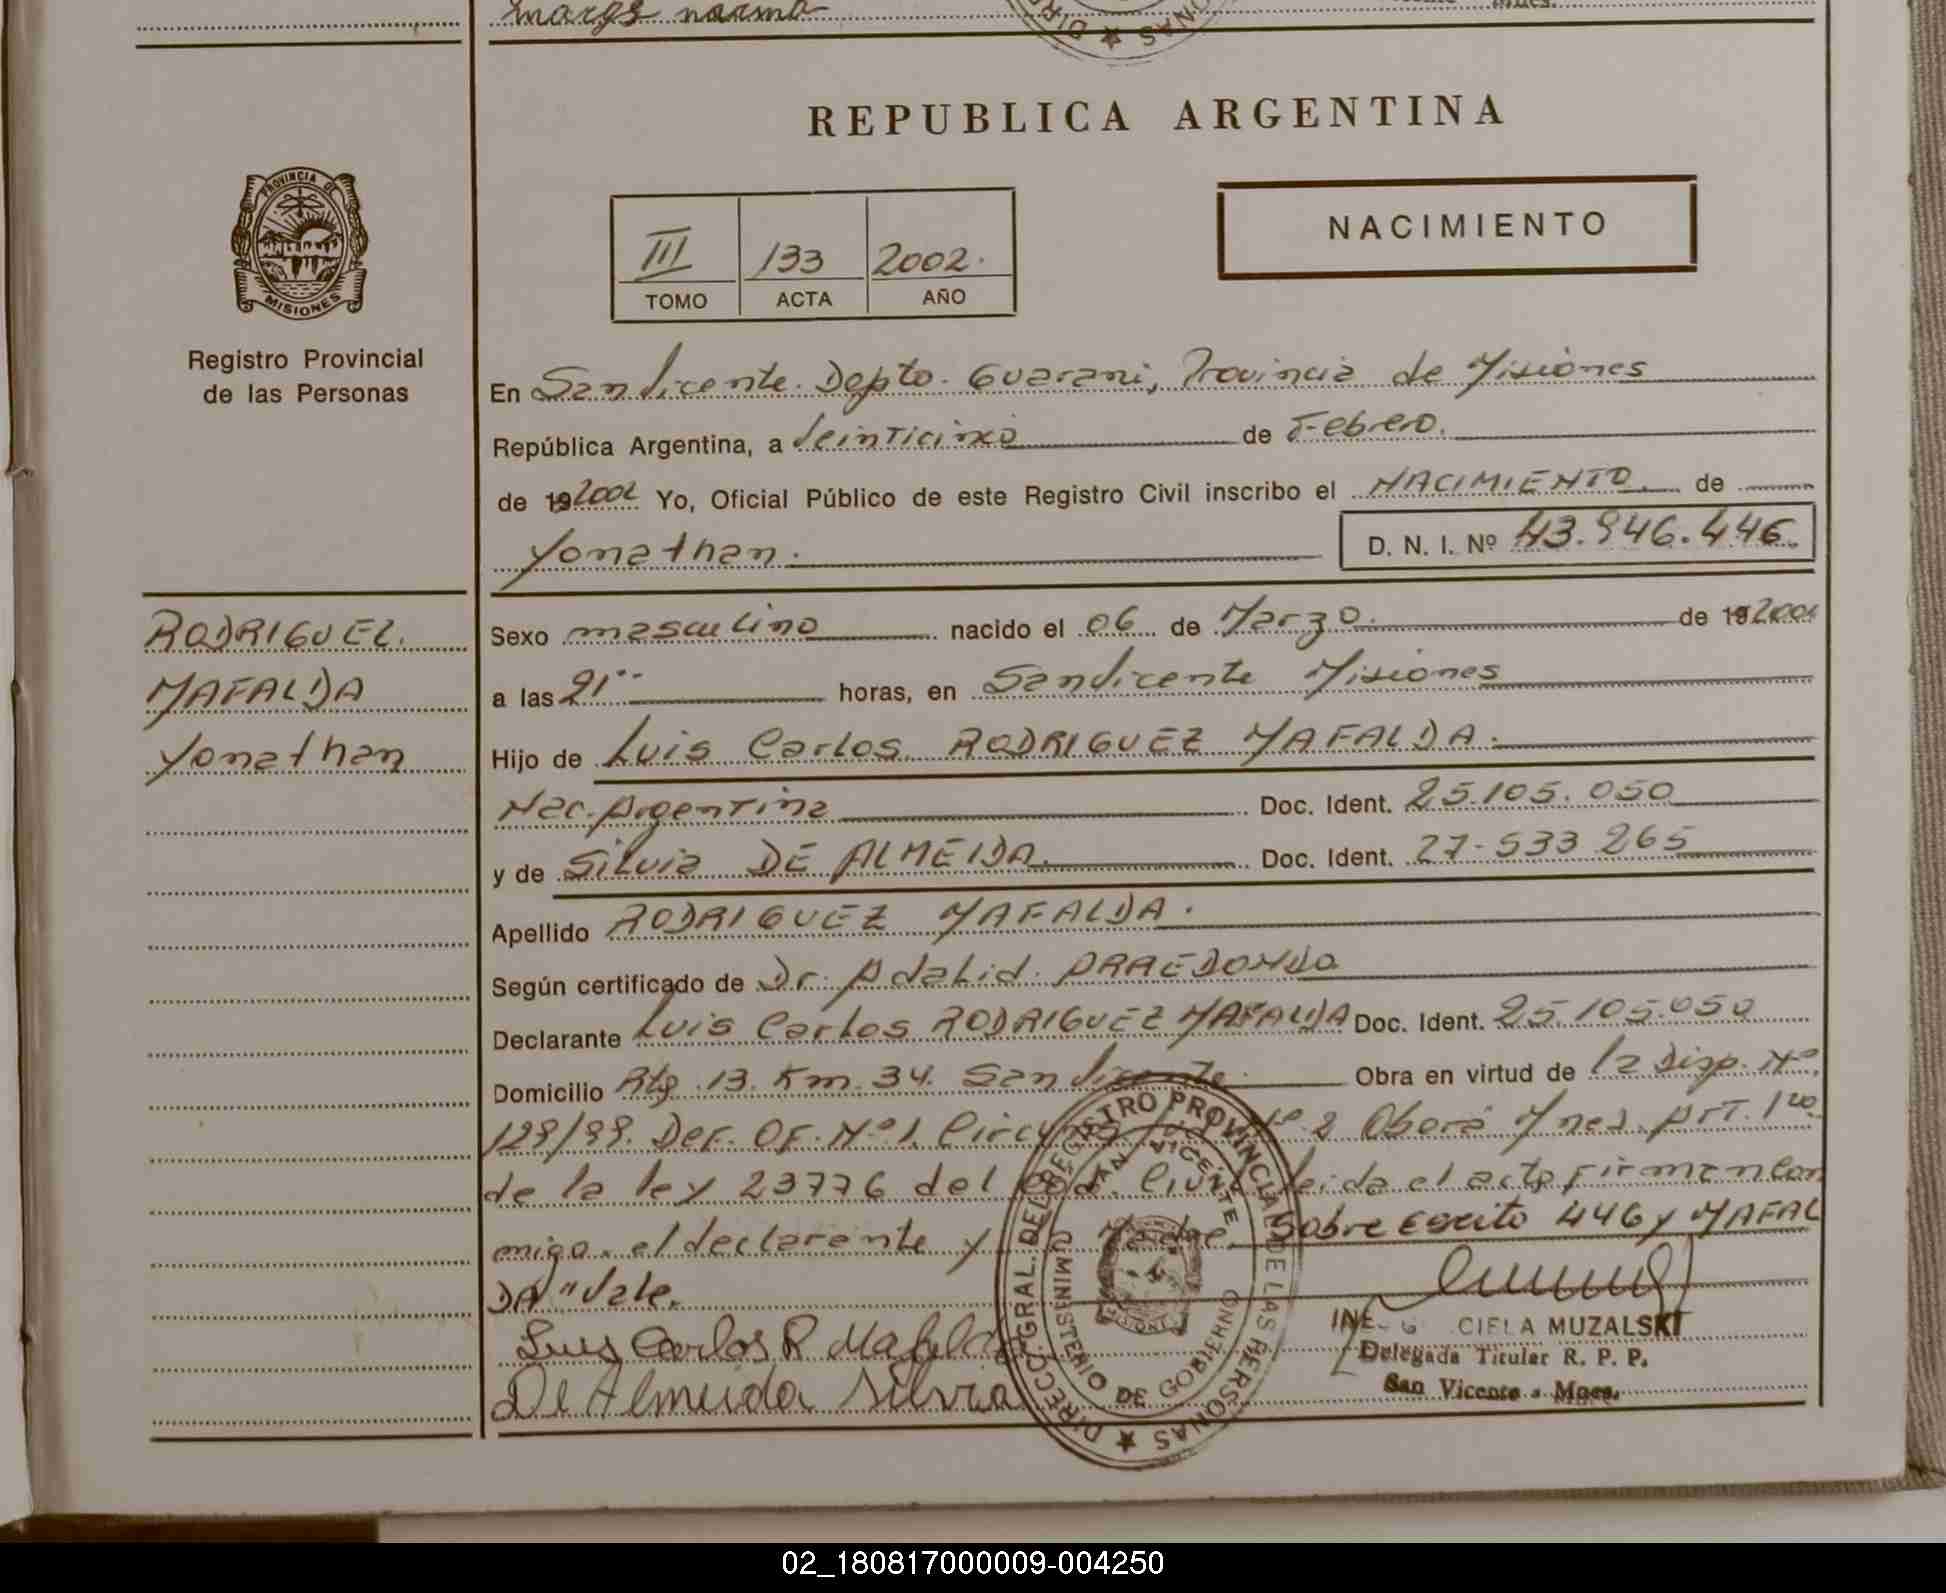 marge norma
REPUBLICA ARGENTINA
PROVINCIA DE
MISIONES
Registro Provincial
de las Personas
III 133 2002.
TOMO ACTA AÑO
NACIMIENTO
En San Vicente. Depto. Guarani, Provincia de Misiones
República Argentina, a Veinticinco de Febrero.
de 192002 Yo, Oficial Público de este Registro Civil inscribo el NACIMIENTO de
Yonathan. D. N. I. Nº 43.946.446.
RODRIGUEZ.
MAFALDA
Yonathan
Sexo masculino nacido el 06 de Marzo. de 19
a las 21 horas, en San Vicente Misiones
Hijo de Luis Carlos RODRIGUEZ MAFALDA.
Nac. Argentina Doc. Ident. 25.105.050
y de Silvia DE ALMEIDA. Doc. Ident. 27-533 265
Apellido RODRIGUEZ MAFALDA.
Según certificado de Dr. Adalid. ARREDONDO
Declarante Luis Carlos RODRIGUEZ MAFALDA Doc. Ident. 25.105.050
Domicilio Rta. 13. Km. 34. San Vicente Obra en virtud de la Disp. Nº
129/99. Def. Of. Nº 1. 2 Oberá Mnes. Art. 1ro
de la ley 23776 del Civil leida el acta firman con
migo. el declarante y Madre. Sobre Escrito 446 y MAFAL
DA" Vale.
Luis Carlos R Mafalda
De Almeida Silvia
DIRECC. GRAL. DEL REGISTRO PROVINCIAL DE LAS PERSONAS
SAN VICENTE
MINISTERIO DE GOBIERNO
CIELA MUZALSKI
Delegada Titular R. P. P.
San Vicente - Mnes.
02_180817000009-004250